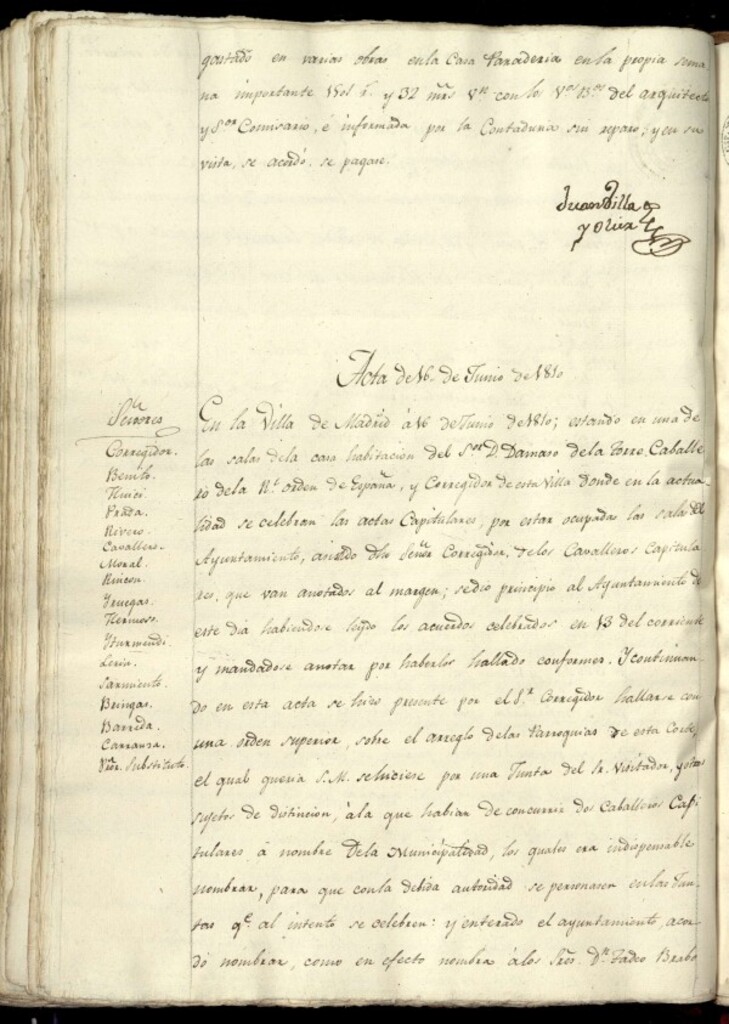 gastado en varias obras enla Casa Panaderia en la propia sema-
na importante r.s y 32 mrs Vn con los Vos Bos del arquitecto
y Sor Comisario, é informada por la Contaduria sin reparo; y en su
vista, se acordó, se pagase.
Juan Villa
y Olier
Acta de 16 de Junio de 1810
Señores
Corregidor.
Benito.
Prada.
Rivero.
Cavallero.
Moral.
Rincon.
Yruegas.
Hermoso.
Yturmendi.
Lerin.
Sarmiento.
Bringas.
Barreda.
Carranza.
Substituto.
En la Villa de Madrid á 16 de Junio de 1810; estando en una de
las salas dela casa habitacion del Sor D. Damaso dela Torre, Caballe
ro dela Rl orden de España, y Corregidor de esta Villa donde en la actua
lidad se celebran las actas Capitulares, por estar ocupadas las salas del
Ayuntamiento, asistido dho Señor Corregidor, delos Cavalleros Capitula
res, que van anotados al margen; sedio principio al Ayuntamiento de
este dia habiendose leydo los acuerdos celebrados en 13 del corriente
y mandadose anotar por haberlos hallado conformes. Y continuan-
do en esta acta se hizo presente por el Sr Corregidor hallarse con
una orden superior, sobre el arreglo delas Parroquias de esta Corte,
el qual queria S.M. se hiciese por una Junta del Sr Visitador, y otros
sujetos de distincion, ála que habian de concurrir dos Caballeros Capi
tulares á nombre dela Municipalidad, los quales era indispensable
nombrar, para que conla debida autoridad se personasen enlas Jun-
tas qe al intento se celebren: y enterado el ayuntamiento, acor-
dó nombrar, como en efecto nombra álos Sres Dn Tadeo Brabo